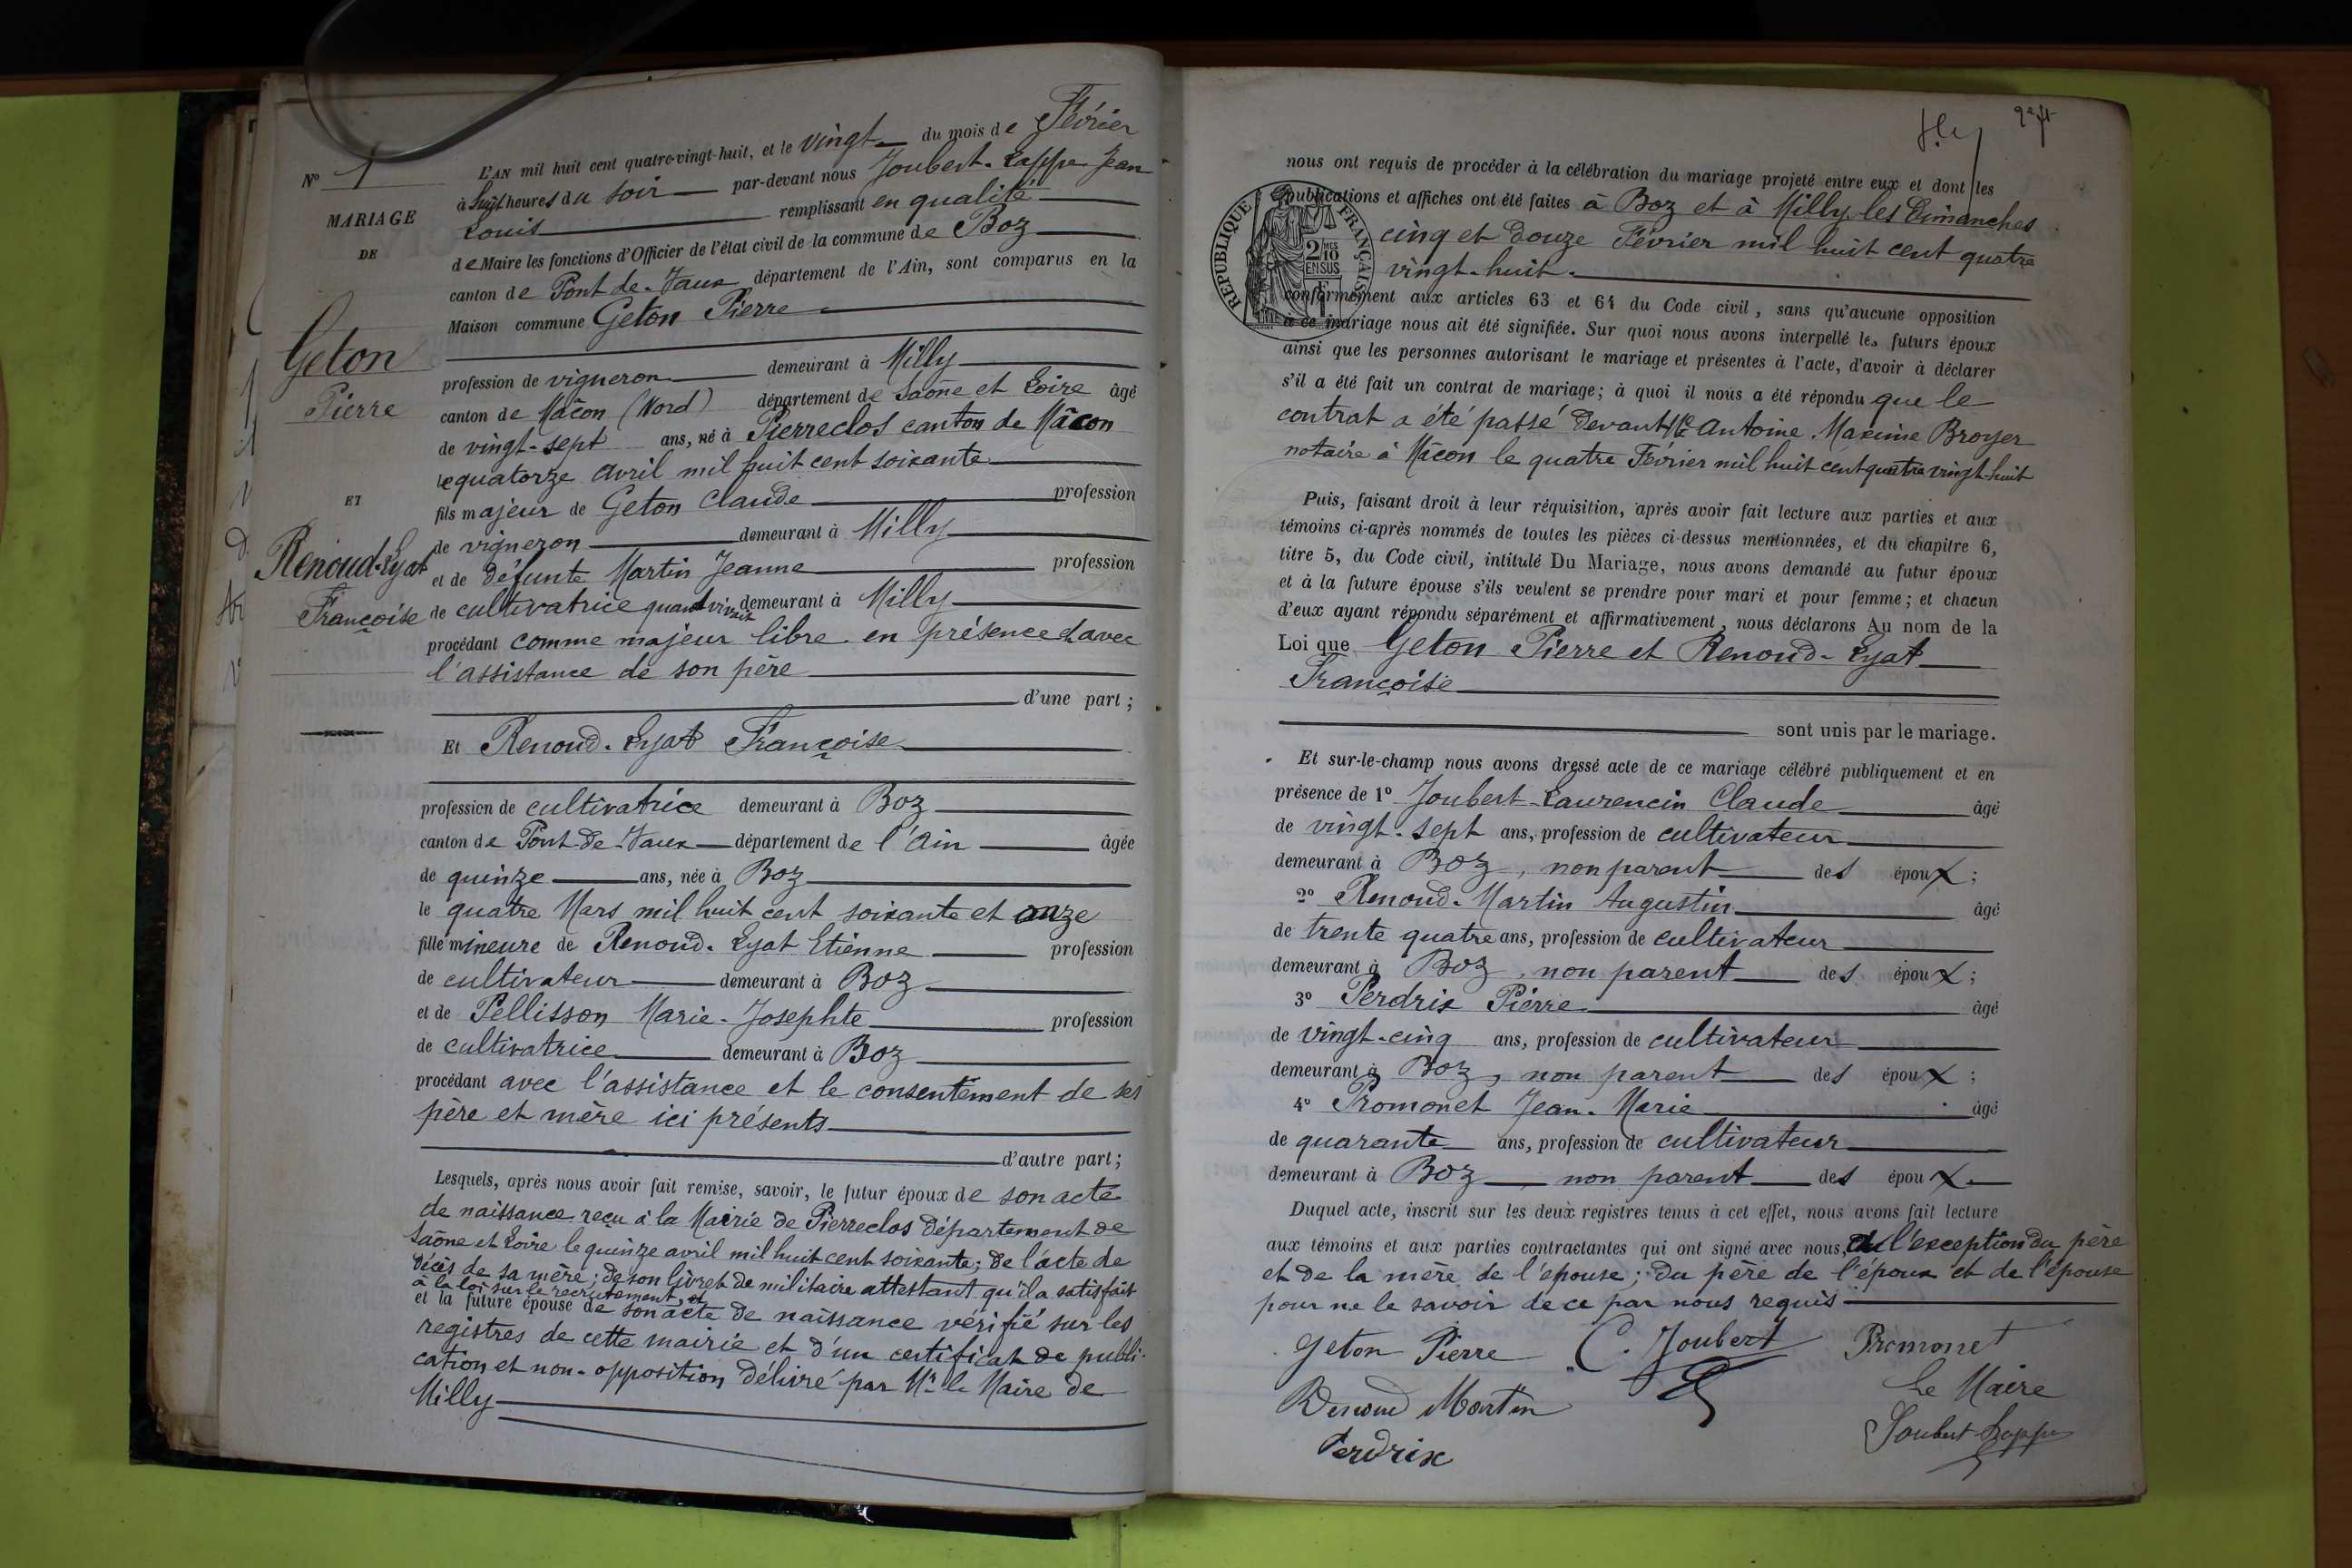 N° 1
MARIAGE
DE
Geton
Pierre
ET
Renoud-Lyat
Françoise
L'AN mil huit cent quatre-vingt-huit, et le vingt du mois de Février
à huit heures du soir par-devant nous Joubert-Lappe Jean
Louis remplissant en qualité
de Maire les fonctions d'Officier de l'état civil de la commune de Boz
canton de Pont-de-Vaux département de l'Ain, sont comparus en la
Maison commune Geton Pierre
profession de vigneron demeurant à Milly
canton de Mâcon (Nord) département de Saône et Loire âgé
de vingt-sept ans, né à Pierreclos canton de Mâcon
le quatorze avril mil huit cent soixante
fils majeur de Geton Claude profession
de vigneron demeurant à Milly
et de défunte Martin Jeanne profession
de cultivatrice quand vivait demeurant à Milly
procédant comme majeur libre en présence et avec
l'assistance de son père
d'une part ;
Et Renoud-Lyat Françoise
profession de cultivatrice demeurant à Boz
canton de Pont-de-Vaux département de l'Ain âgée
de quinze ans, née à Boz
le quatre Mars mil huit cent soixante et onze
fille mineure de Renoud-Lyat Etienne profession
de cultivateur demeurant à Boz
et de Pellisson Marie-Josephte profession
de cultivatrice demeurant à Boz
procédant avec l'assistance et le consentement de ses
père et mère ici présents
d'autre part ;
Lesquels, après nous avoir fait remise, savoir, le futur époux de son acte
de naissance reçu à la Mairie de Pierreclos département de
Saône et Loire le quinze avril mil huit cent soixante ; de l'acte de
décès de sa mère ; de son livret de militaire attestant qu'il a satisfait
à la loi sur le recrutement, et
et la future épouse de son acte de naissance vérifié sur les
registres de cette mairie et d'un certificat de publi-
cation et non-opposition délivré par Mr le Maire de
Milly
nous ont requis de procéder à la célébration du mariage projeté entre eux et dont les
publications et affiches ont été faites à Boz et à Milly les Dimanches
cinq et douze Février mil huit cent quatre
vingt-huit.
RÉPUBLIQUE FRANÇAISE
2/10
EN SUS
conformément aux articles 63 et 64 du Code civil, sans qu'aucune opposition
à ce mariage nous ait été signifiée. Sur quoi nous avons interpellé les futurs époux
ainsi que les personnes autorisant le mariage et présentes à l'acte, d'avoir à déclarer
s'il a été fait un contrat de mariage ; à quoi il nous a été répondu que le
contrat a été passé devant Me Antoine Maxime Broyer
notaire à Mâcon le quatre Février mil huit cent quatre vingt-huit
Puis, faisant droit à leur réquisition, après avoir fait lecture aux parties et aux
témoins ci-après nommés de toutes les pièces ci-dessus mentionnées, et du chapitre 6,
titre 5, du Code civil, intitulé Du Mariage, nous avons demandé au futur époux
et à la future épouse s'ils veulent se prendre pour mari et pour femme ; et chacun
d'eux ayant répondu séparément et affirmativement, nous déclarons Au nom de la
Loi que Geton Pierre et Renoud-Lyat
Françoise
sont unis par le mariage.
Et sur-le-champ nous avons dressé acte de ce mariage célébré publiquement et en
présence de 1° Joubert-Laurencin Claude âgé
de vingt-sept ans, profession de cultivateur
demeurant à Boz, non parent des époux ;
2° Renoud-Martin Augustin âgé
de trente quatre ans, profession de cultivateur
demeurant à Boz, non parent des époux ;
3° Perdrix Pierre âgé
de vingt-cinq ans, profession de cultivateur
demeurant à Boz, non parent des époux ;
4° Promonet Jean-Marie âgé
de quarante ans, profession de cultivateur
demeurant à Boz non parent des époux
Duquel acte, inscrit sur les deux registres tenus à cet effet, nous avons fait lecture
aux témoins et aux parties contractantes qui ont signé avec nous, à l'exception du père
et de la mère de l'épouse ; du père de l'époux et de l'épouse
pour ne le savoir de ce par nous requis
Geton Pierre C. Joubert Promonet
Renoud Martin Le Maire
Perdrix Joubert Lappe